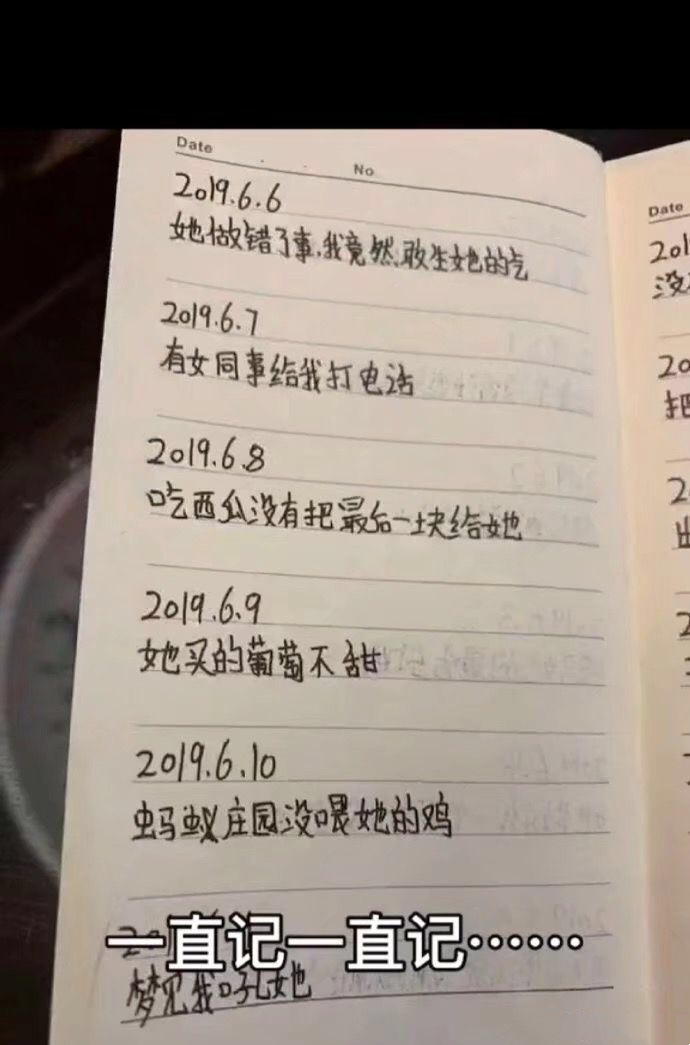 Date
No.
2019.6.6
她做错了事，我竟然敢生她的气
2019.6.7
有女同事给我打电话
2019.6.8
吃西瓜没有把最后一块给她
2019.6.9
她买的葡萄不甜
2019.6.10
蚂蚁庄园没喂她的鸡
一直记一直记……
梦见我吼她
Date
201
没
20
把
2
出
2